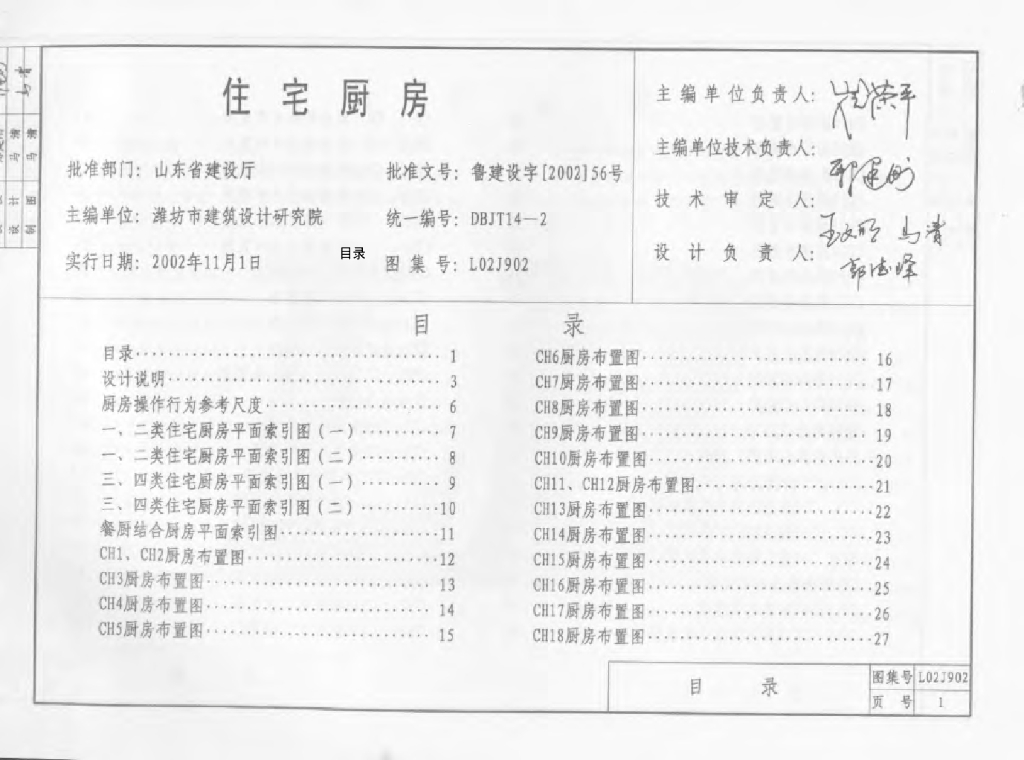 住宅厨房
批准部门: 山东省建设厅 批准文号: 鲁建设字[2002]56号
主编单位: 潍坊市建筑设计研究院 统一编号: DBJT14-2
实行日期: 2002年11月1日 图集号: L02J902
目录
主编单位负责人:
主编单位技术负责人:
技术审定人:
设计负责人:
目录
目录 1
设计说明 3
厨房操作行为参考尺度 6
一、二类住宅厨房平面索引图(一) 7
一、二类住宅厨房平面索引图(二) 8
三、四类住宅厨房平面索引图(一) 9
三、四类住宅厨房平面索引图(二) 10
餐厨结合厨房平面索引图 11
CH1、CH2厨房布置图 12
CH3厨房布置图 13
CH4厨房布置图 14
CH5厨房布置图 15
CH6厨房布置图 16
CH7厨房布置图 17
CH8厨房布置图 18
CH9厨房布置图 19
CH10厨房布置图 20
CH11、CH12厨房布置图 21
CH13厨房布置图 22
CH14厨房布置图 23
CH15厨房布置图 24
CH16厨房布置图 25
CH17厨房布置图 26
CH18厨房布置图 27
目录
图集号 L02J902
页号 1
设计 马清
制图 马清